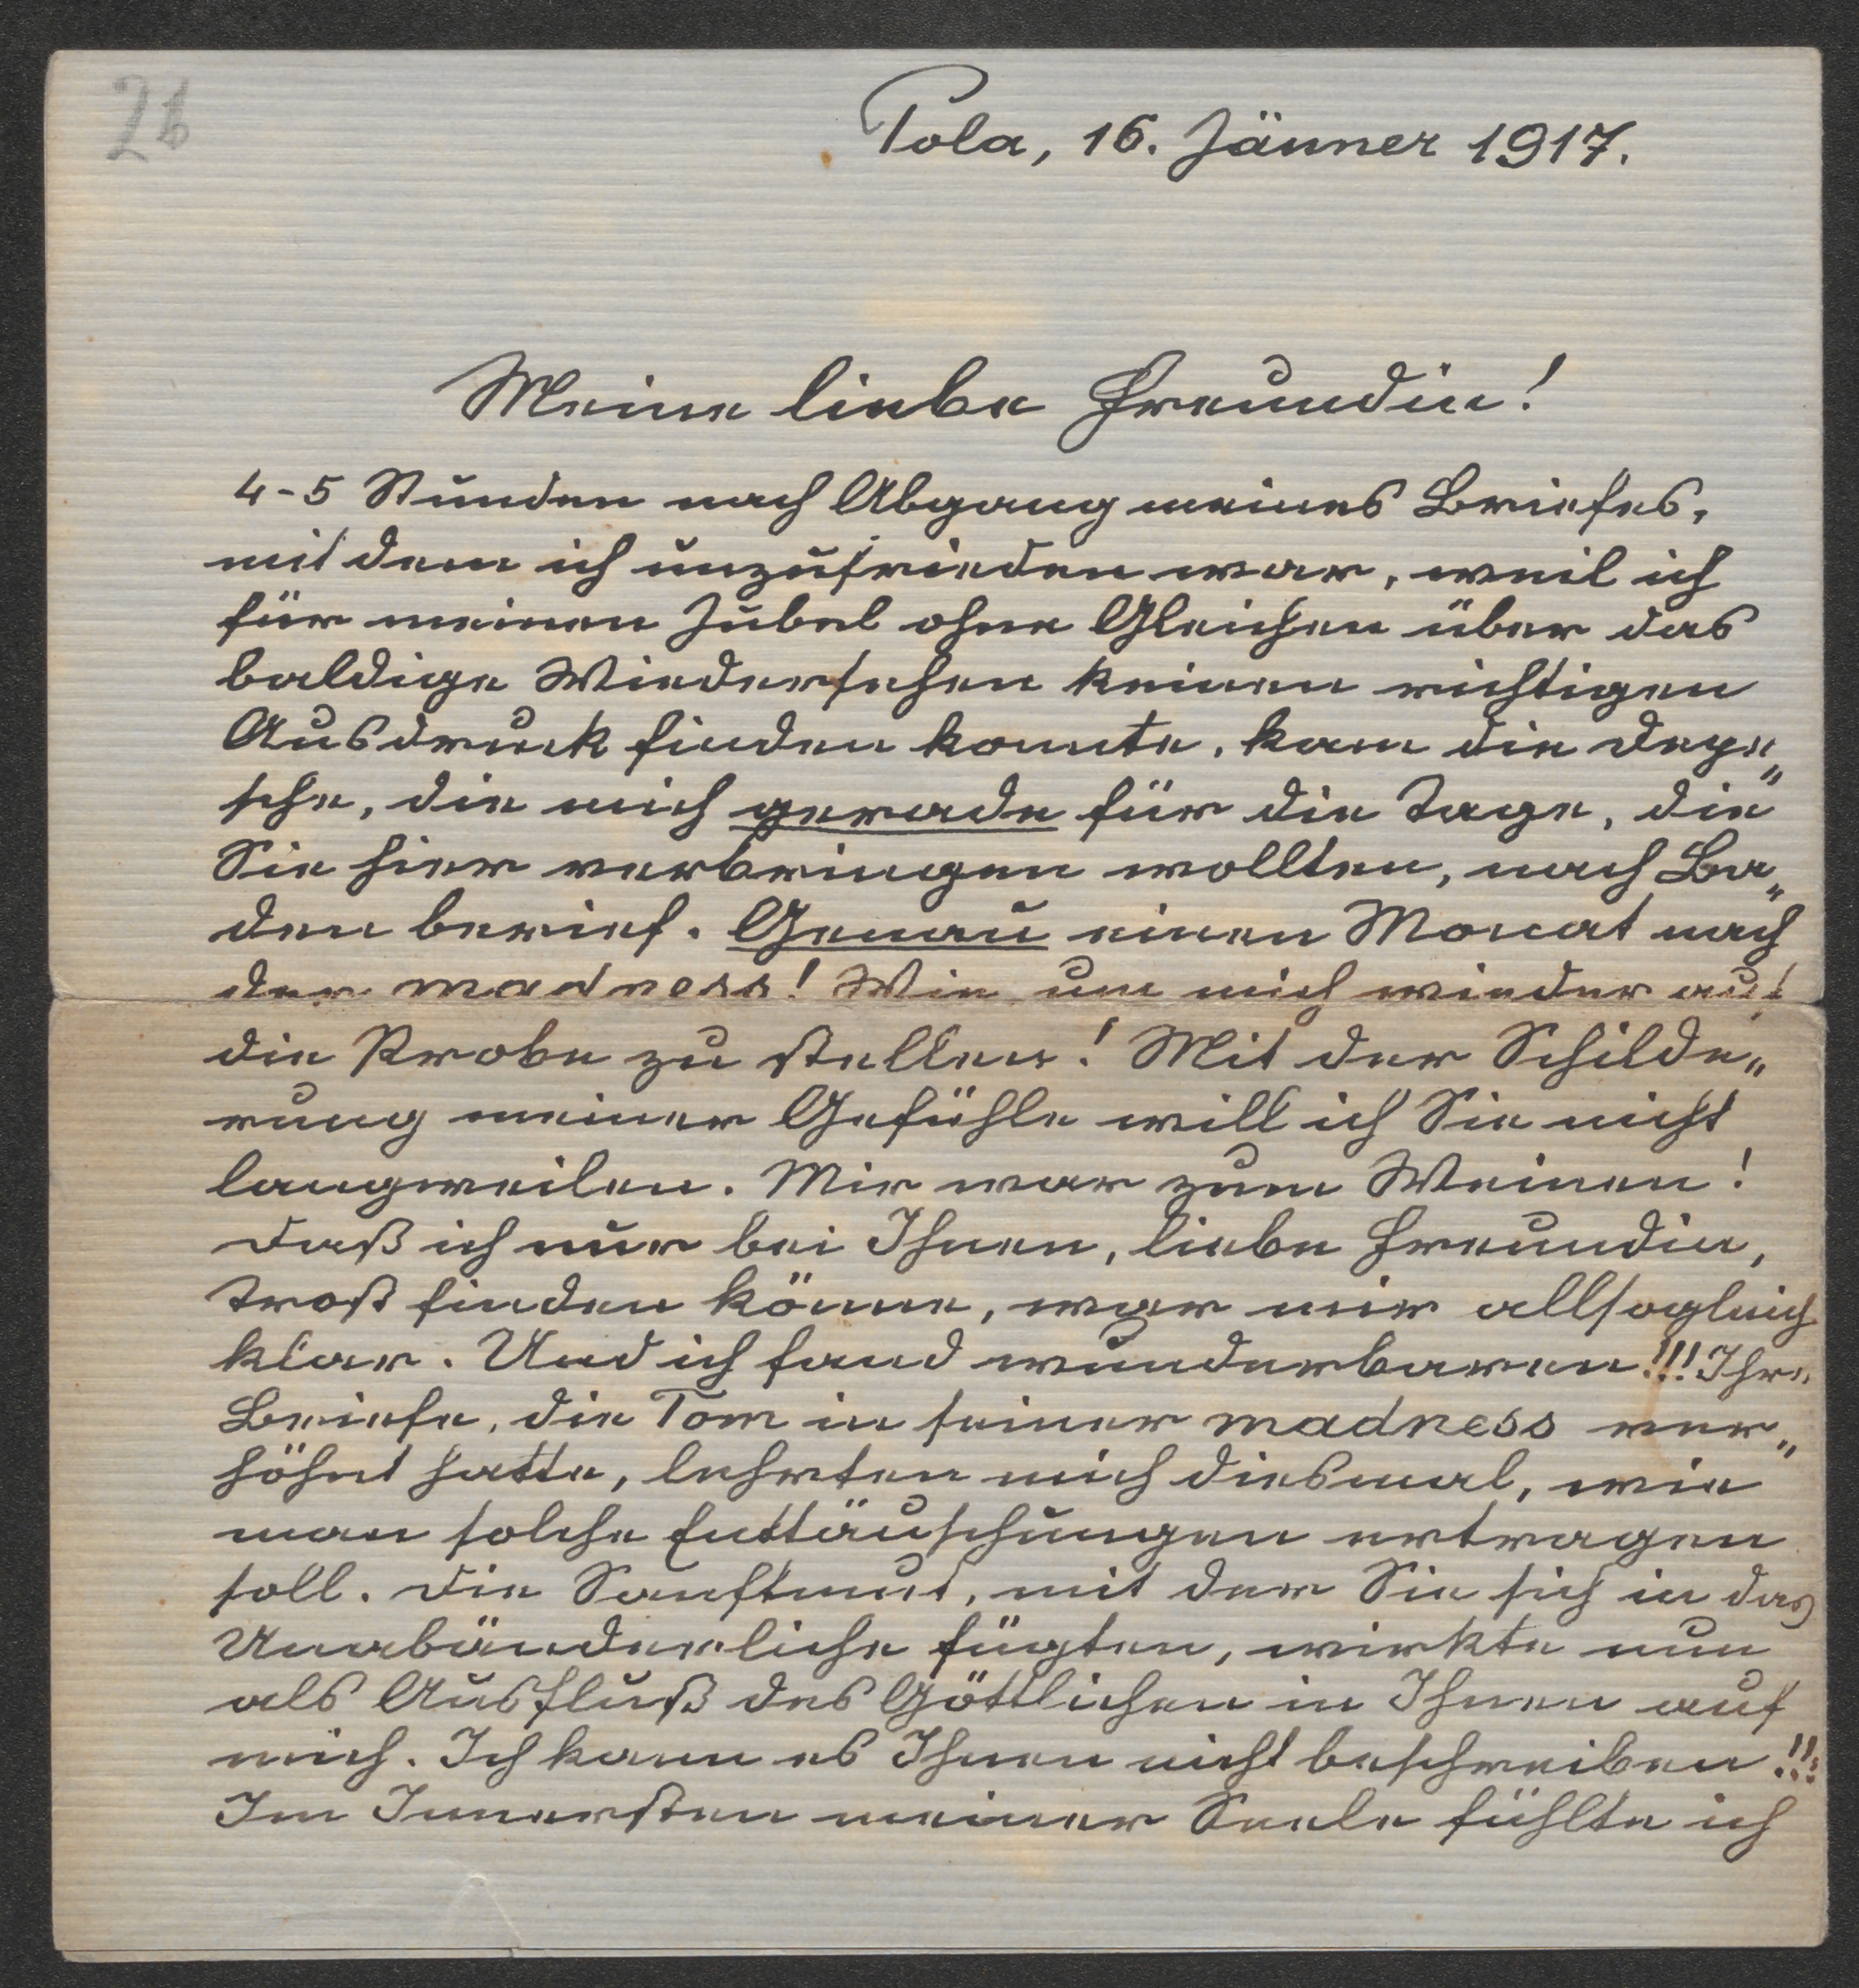 26
Pola, 16. Jänner 1917.
Meine liebe Freundin!
4-5 Stunden nach Abgang meines Briefes,
mit dem ich unzufrieden war, weil ich
für meinen Jubel ohne Gleichen über das
baldige Wiedersehen keinen richtigen
Ausdruck finden konnte, kam die Depe„
sche, die mich gerade für die Tage, die
Sie hier verbringen wollten, nach Ba„
den berief. Genau einen Monat nach
der madness! Wie um mich wieder auf
die Probe zu stellen! Mit der Schilde„
rung meiner Gefühle will ich Sie nicht
langweilen. Mir war zum Weinen!
Daß ich nur bei Ihnen, liebe Freundin,
Trost finden könne, war mir allsogleich
klar. Und ich fand wunderbaren!!! Ihre
Briefe, die Tom in seiner madness ver„
höhnt hatte, lehrten mich diesmal, wie
man solche Enttäuschungen ertragen
soll. Die Sanftmut, mit der Sie sich in das
Unabänderliche fügten, wirkte nun
als Ausfluß des Göttlichen in Ihnen auf
mich. Ich kann es Ihnen nicht beschreiben!!!
Im Innersten meiner Seele fühlte ich